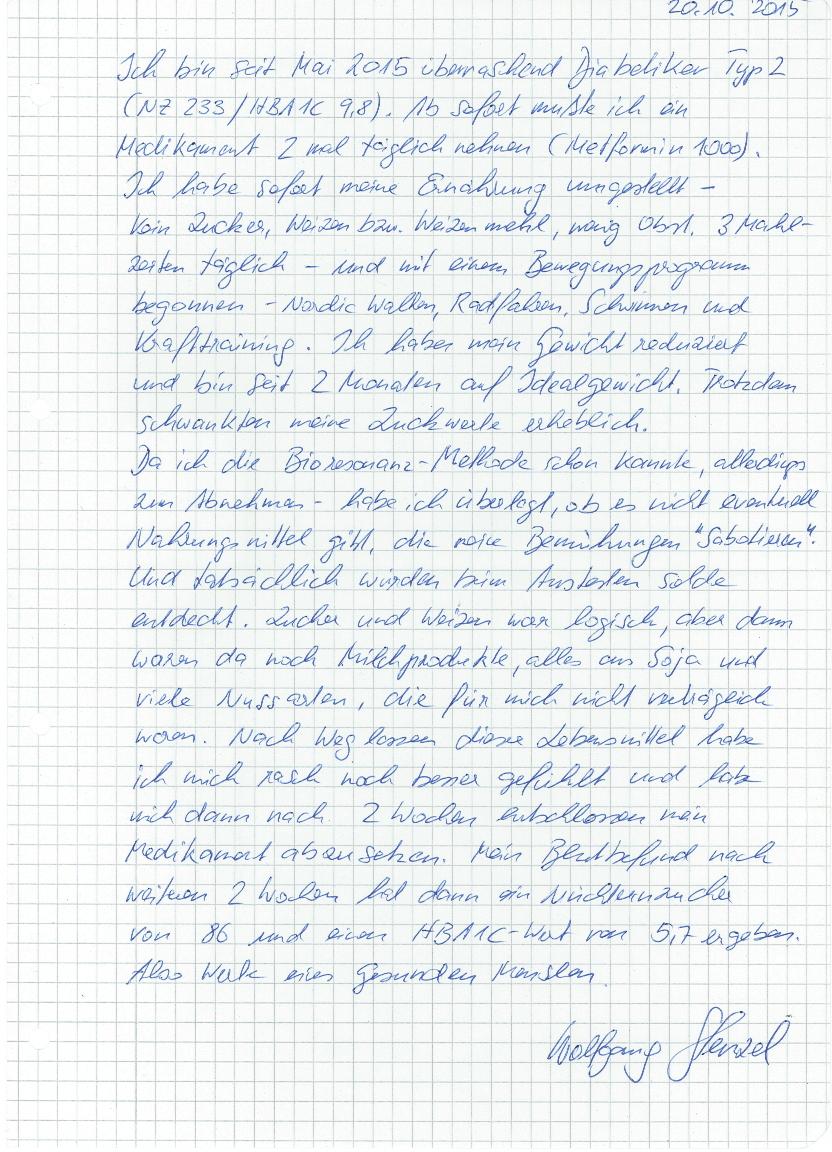 20.10.2015
Ich bin seit Mai 2015 überraschend Diabetiker Typ 2
(NZ 233 / HBA1C 9,8). Ab sofort mußte ich ein
Medikament 2 mal täglich nehmen (Metformin 1000).
Ich habe sofort meine Ernährung umgestellt –
Kein Zucker, Weizen bzw. Weizenmehl, wenig Obst. 3 Mahl-
zeiten täglich – und mit einem Bewegungsprogramm
begonnen – Nordic Walken, Radfahren, Schwimmen und
Krafttraining. Ich habe mein Gewicht reduziert
und bin seit 2 Monaten auf Idealgewicht. Trotzdem
schwankten meine Zuckwerte erheblich.
Da ich die Bioresonanz-Methode schon kannte, allerdings
zum Abnehmen – habe ich überlegt, ob es nicht eventuell
Nahrungsmittel gibt, die meine Bemühungen "Sabotieren".
Und tatsächlich wurden beim Austesten solche
entdeckt. Zucker und Weizen war logisch, aber dann
waren da noch Milchprodukte, alles aus Soja und
viele Nussarten, die für mich nicht verträglich
waren. Nach Weglassen dieser Lebensmittel habe
ich mich rasch noch besser gefühlt und habe
mich dann nach 2 Wochen entschlossen mein
Medikament abzusetzen. Mein Blutbefund nach
weiteren 2 Wochen hat dann ein Nüchternzucker
von 86 und einen HBA1C-Wert von 5,7 ergeben.
Also Werte eines Gesunden Menschen.
Wolfgang